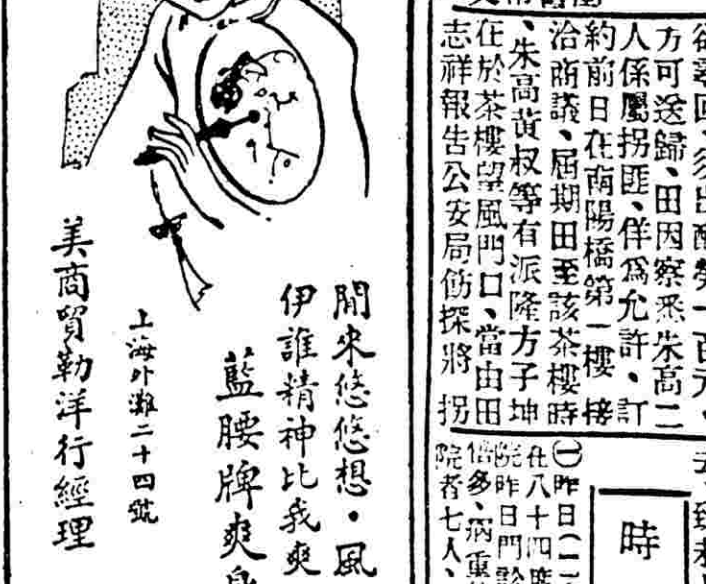 方可送歸、田因察悉朱高二
人係屬拐匪、佯爲允許、訂
約前日在南陽橋第一樓接
洽商議、屆期田至該茶樓時
、朱高黃杈等有派隆方子坤
在於茶樓望風門口、當由田
志祥報告公安局飭探將拐
時
㊀昨日(二
在八十四
院昨日門診
倍多、病重
院者七人、
閒來悠悠想·風
伊誰精神比我爽
藍腰牌爽身
上海外灘二十四號
美商貿勒洋行經理